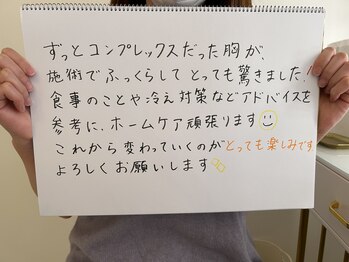 ずっとコンプレックスだった胸が、
施術でふっくらしてとっても驚きました!
食事のことや冷え対策などアドバイスを
参考に、ホームケア頑張ります
これから変わっていくのがとっても楽しみです
よろしくお願いします